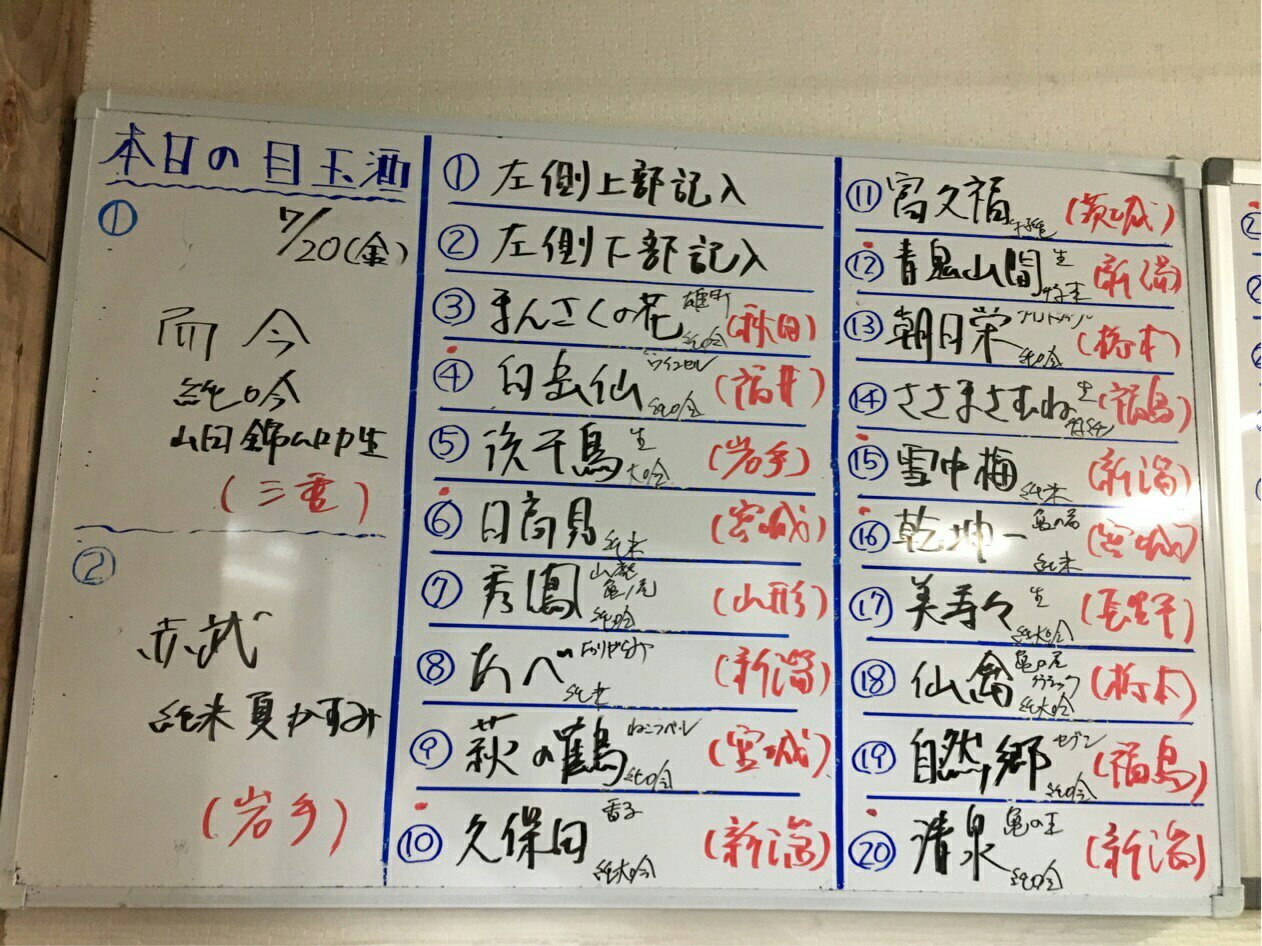 本日の目玉酒
①
7/20(金)
而今
純吟
山田錦ムロカ生
(三重)
②
赤武
純米 夏かすみ
(岩手)
① 左側上部記入
② 左側下部記入
③ まんさくの花 雄町 純吟 (秋田)
④ 白岳仙 純吟 (福井)
⑤ 浜千鳥 生 大吟 (岩手)
⑥ 日高見 純米 (宮城)
⑦ 秀鳳 山廃 亀ノ尾 純吟 (山形)
⑧ あべ 純米 (新潟)
⑨ 萩の鶴 ねこラベル 純吟 (宮城)
⑩ 久保田 香子 純大吟 (新潟)
⑪ 富久福 (茨城)
⑫ 青鬼山間 生 (新潟)
⑬ 朝日栄 純吟 (栃木)
⑭ ささまさむね 生 (福島)
⑮ 雪中梅 純米 (新潟)
⑯ 乾坤一 亀の尾 純米 (宮城)
⑰ 美寿々 生 純大吟 (長野)
⑱ 仙禽 亀の尾 純大吟 (栃木)
⑲ 自然郷 セブン 純吟 (福島)
⑳ 清泉 亀の王 純吟 (新潟)